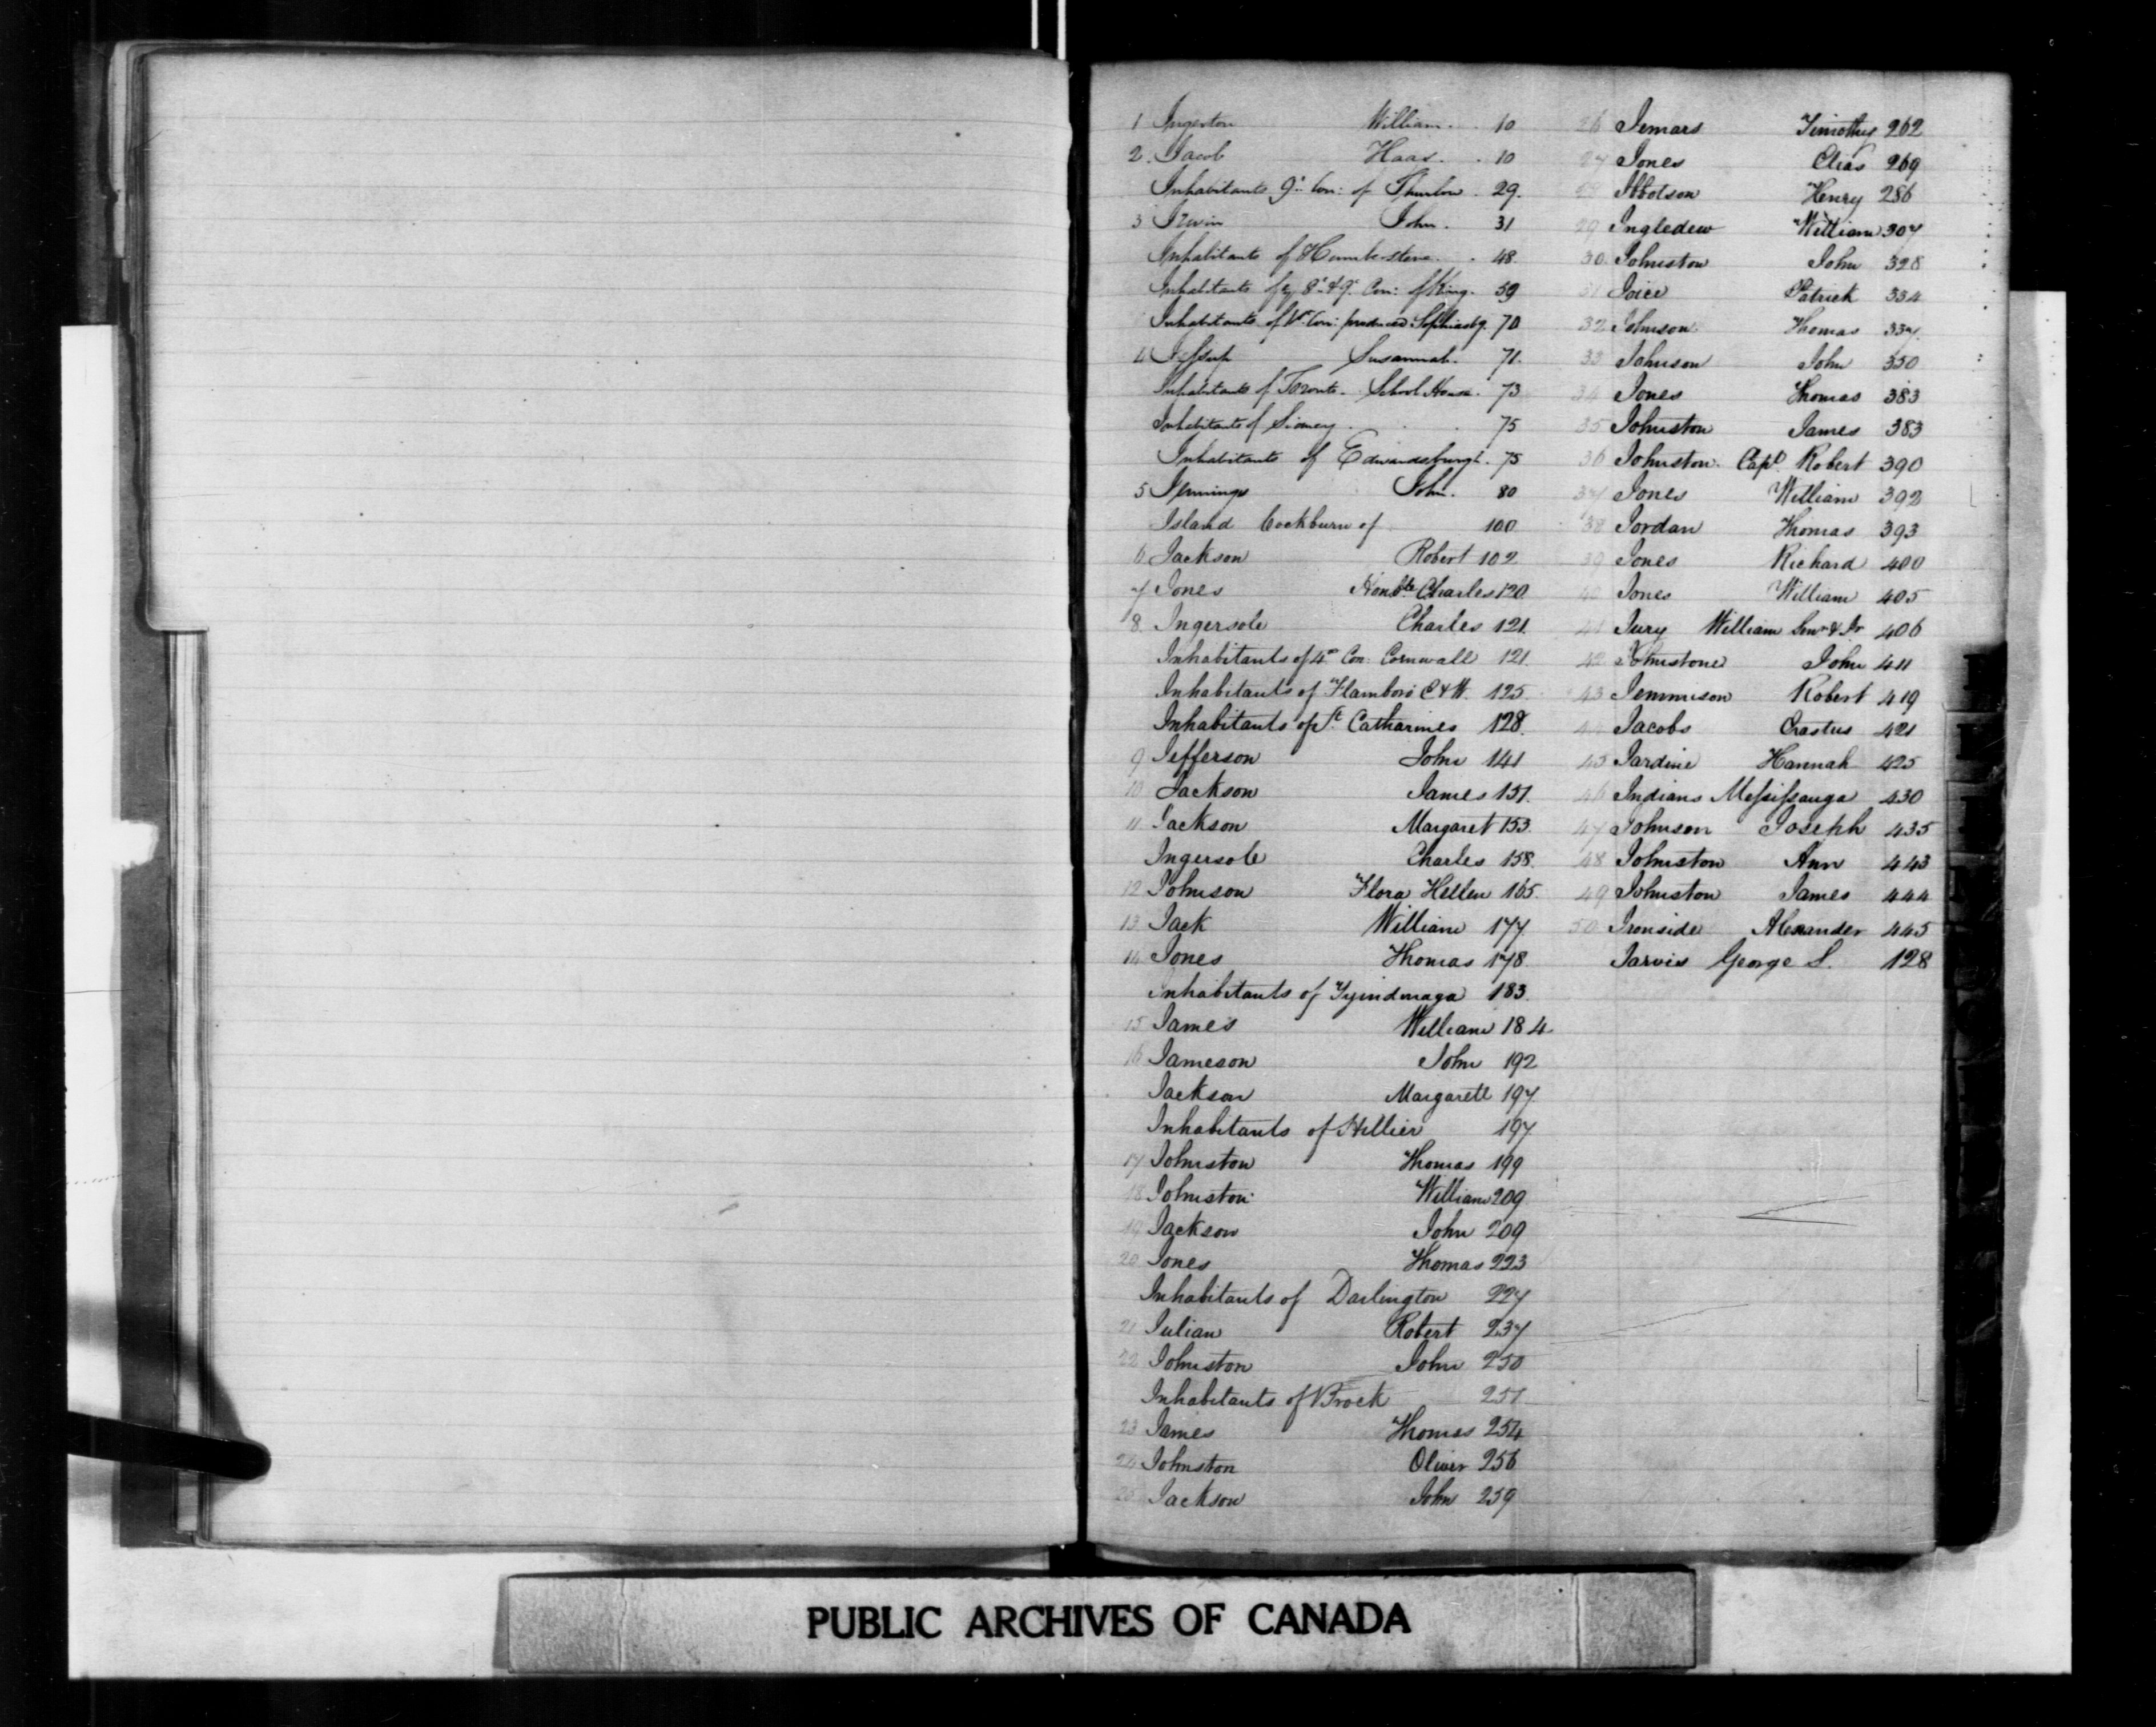 1 Ingerton William. . 10
2. Jacob Haas. . 10
Inhabitants 9th Con: of Thurlow . 29.
3 Irwin John. 31
Inhabitants of Humberstone. . 48.
Inhabitants of ye 8th & 9th Con: of King. 59
Inhabitants of 1st Con: produced: Sophiasbg. 70
4 Jessup Susannah. 71.
Inhabitants of Toronto. School House. 73
Inhabitants of Sidney . . . 75
Inhabitants of Edwardsburgh. 75
5 Jennings John. 80
Island Cockburn of 100
6 Jackson Robert 102
7 Jones Honble Charles 120
8. Ingersole Charles 121.
Inhabitants of 4th Con: Cornwall 121.
Inhabitants of Flamboro E & W. 125.
Inhabitants of St Catharines 128.
9 Jefferson John 141
10 Jackson James 151.
11 Jackson Margaret 153.
Ingersole Charles 158.
12 Johnson Flora Hellen 165.
13 Jack William 177.
14 Jones Thomas 178.
Inhabitants of Tyindinaga 183.
15 James William 184.
16 Jameson John 192
Jackson Margarett 197
Inhabitants of Hillier 197
17 Johnston Thomas 199
18 Johnston William 209
19 Jackson John 209
20 Jones Thomas 223
Inhabitants of Darlington 227
21 Julian Robert 237
22 Johnston John 250
Inhabitants of Brock 251
23 James Thomas 254
24 Johnston Oliver 256
25 Jackson John 259
26 Jemars Timothy 262
27 Jones Elias 269
28 Ibbotson Henry 286
29 Ingledew William 307
30. Johnston John 328
31 Joice Patrick 334
32 Johnson Thomas 337.
33 Johnson John 350
34 Jones Thomas 383
35 Johnston James 383
36 Johnston. Capt Robert 390
37 Jones William 392
38 Jordan Thomas 393
39 Jones Richard 400
40 Jones William 405
41 Jury William Senr & Jr 406
42 Johnstone John 411
43 Jemmison Robert 419
44 Jacobs Erastus 421
45 Jardine Hannah 425
46 Indians Messissauga 430
47 Johnson Joseph 435
48 Johnston Ann 443
49 Johnston James 444
50 Ironside Alexander 445
Jarvis George S. 128
PUBLIC ARCHIVES OF CANADA